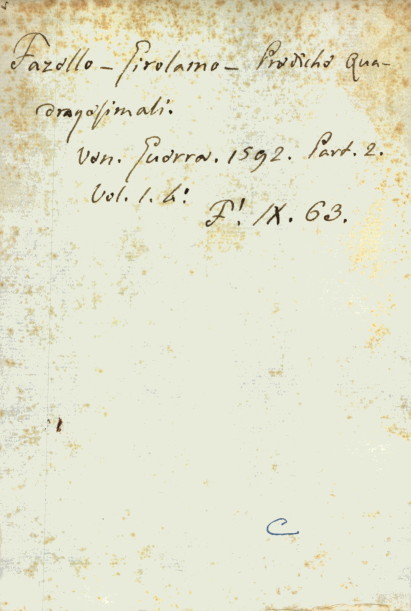 Fazello – Girolamo – Prediche Qua-
dragesimali.
Ven. Guerra. 1592. Part. 2.
Vol. 1. 4!
F! IX. 63.
C